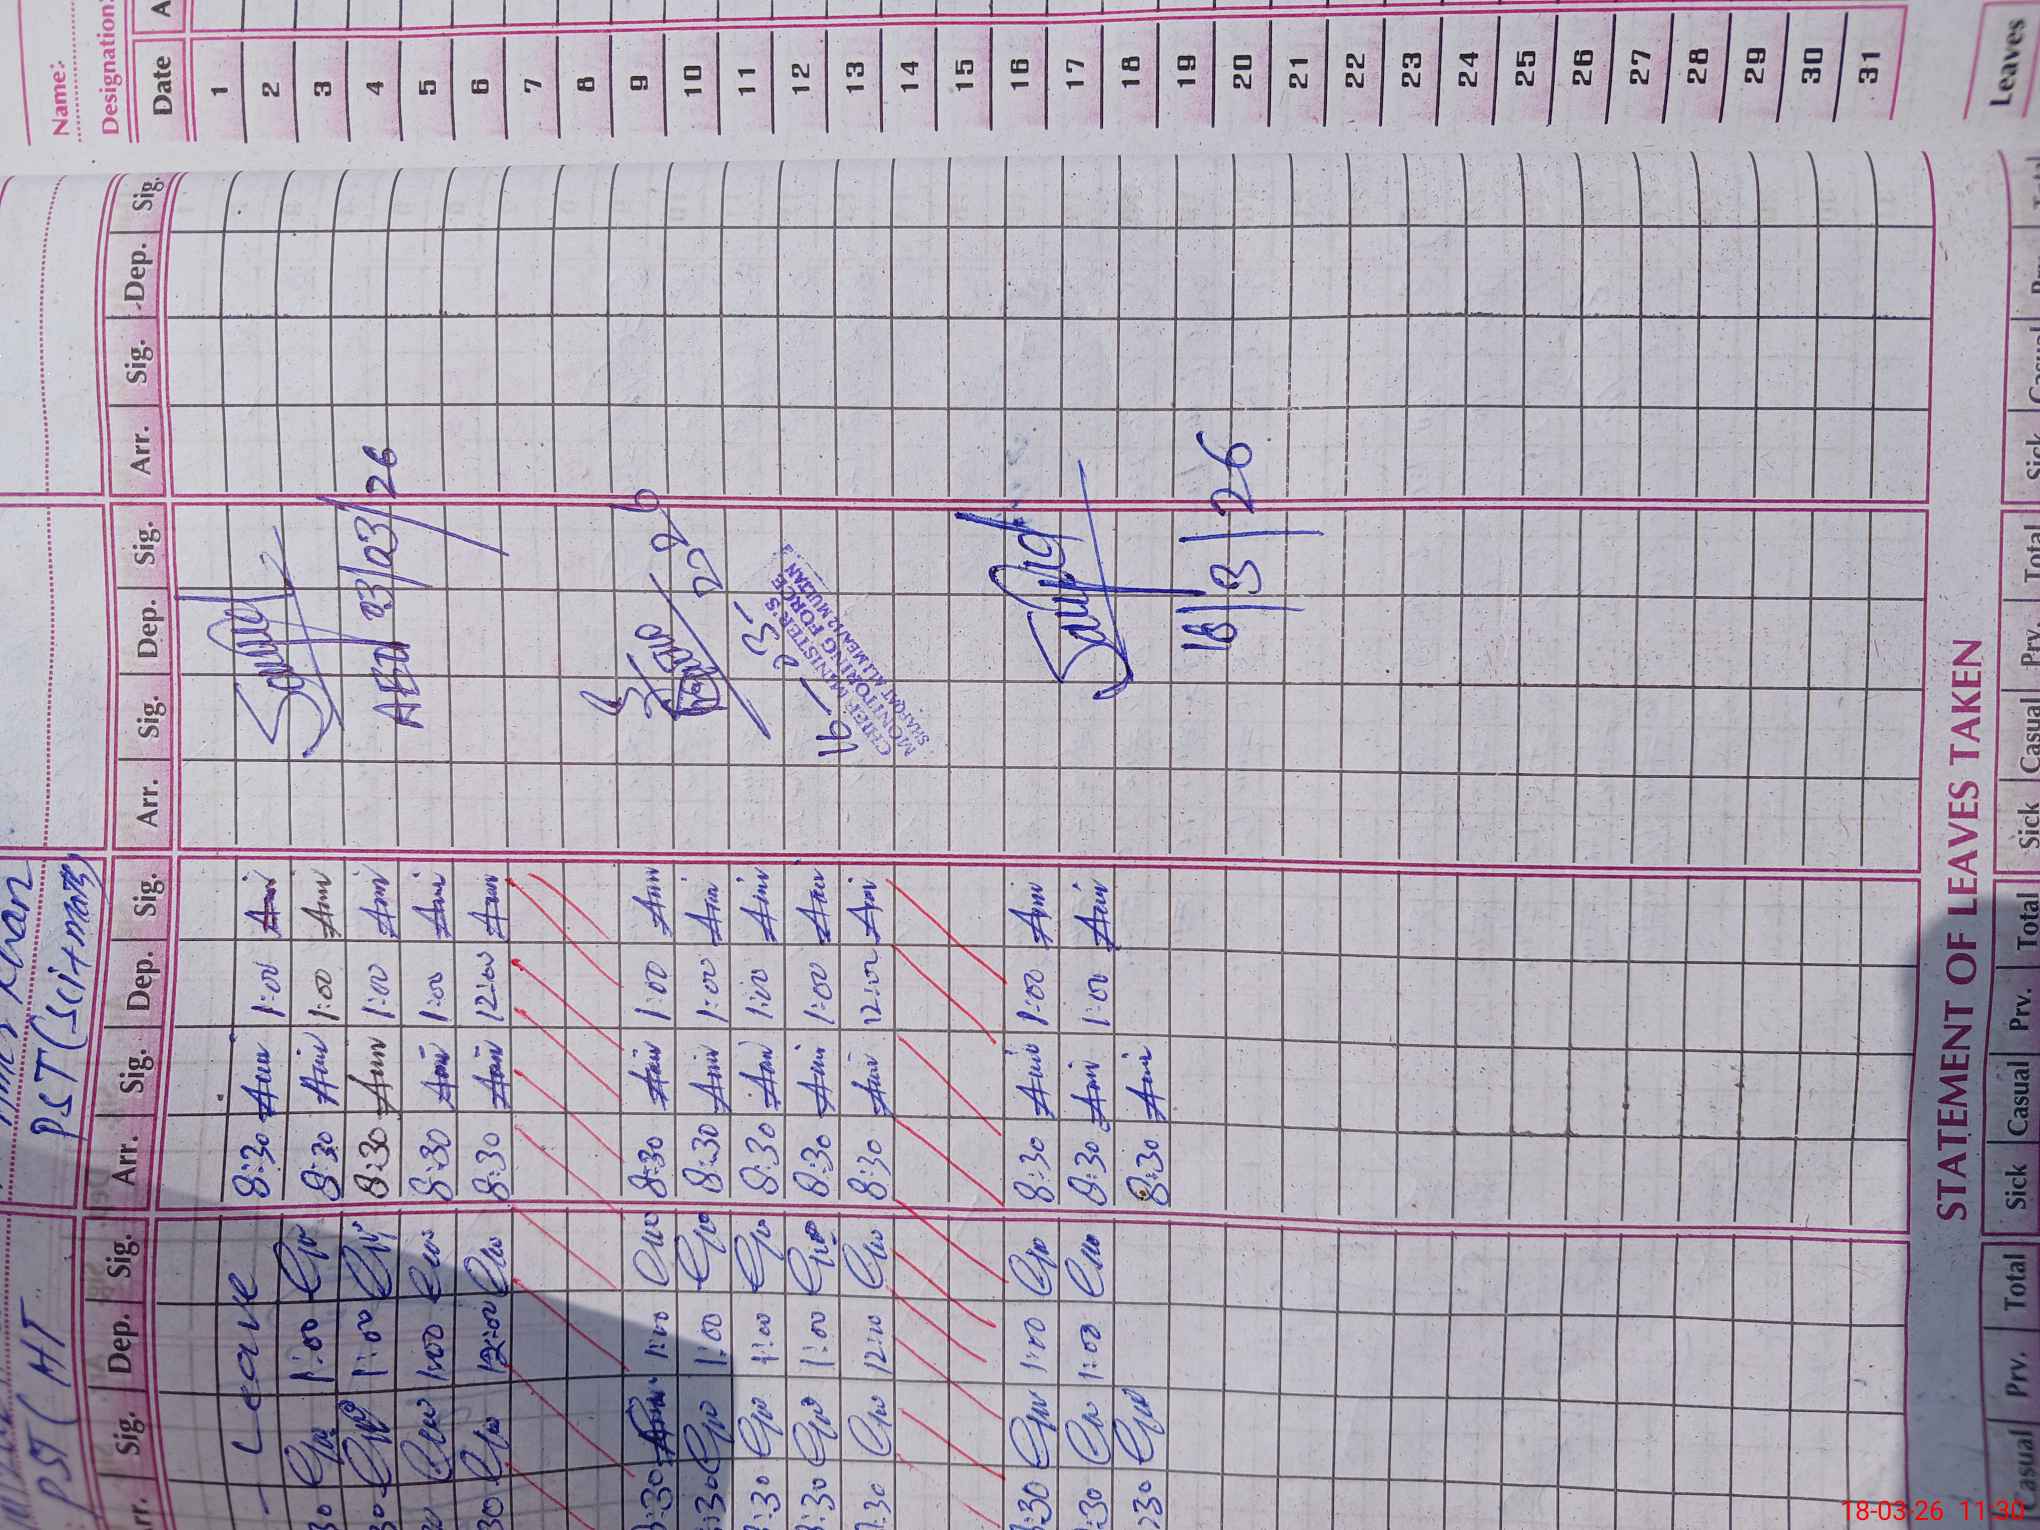 PST ( HT
PST (sci+math)
Arr. Sig. Dep. Sig. Arr. Sig. Dep. Sig. Arr. Sig. Dep. Sig. Arr. Sig. Dep. Sig.
- Leave 8:30 1:00
30 1:00 8:30 1:00
30 1:00 8:30 1:00
30 1:00 8:30 1:00
30 12:00 8:30 12:00
8:30 1:00 8:30 1:00
:30 1:00 8:30 1:00
:30 1:00 8:30 1:00
:30 1:00 8:30 1:00
:30 12:00 8:30 12:00
:30 1:00 8:30 1:00
:30 1:00 8:30 1:00
:30 8:30
03/03/26
16-03-2026
CHIEF MINISTER'S
MONITORING FORCE
SHAFQAT ALI MEA 12 MULTAN
18/3/26
STATEMENT OF LEAVES TAKEN
Casual Prv. Total Sick Casual Prv. Total Sick Casual Prv. Total Sick Casual Prv. Total
Name:
Designation:
Date A
1
2
3
4
5
6
7
8
9
10
11
12
13
14
15
16
17
18
19
20
21
22
23
24
25
26
27
28
29
30
31
Leaves
18-03-26 11:30